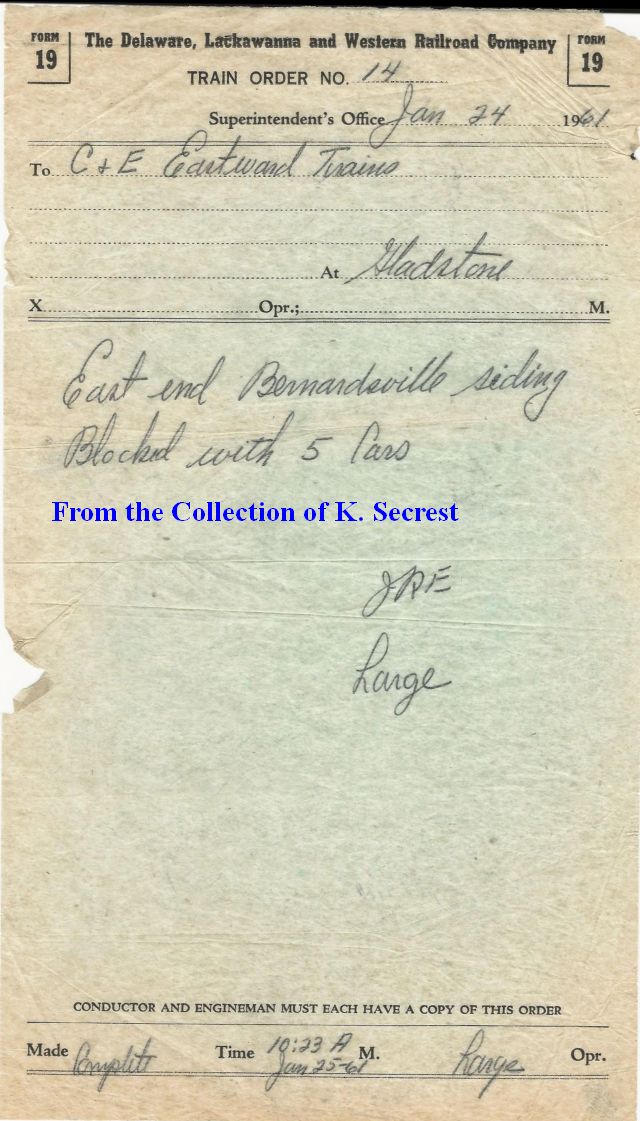 FORM 19
The Delaware, Lackawanna and Western Railroad Company
FORM 19
TRAIN ORDER NO. 14
Superintendent's Office Jan 24 1961
To C & E Eastward Trains
At Gladstone
X Opr.; M.
East end Bernardsville siding
Blocked with 5 Cars
From the Collection of K. Secrest
JRE
Large
CONDUCTOR AND ENGINEMAN MUST EACH HAVE A COPY OF THIS ORDER
Made Complete Time 10:23 A M. Large Opr.
Jan 25-61